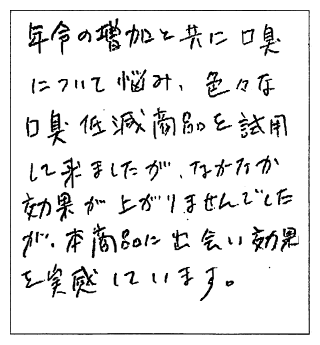 年令の増加と共に口臭
について悩み、色々な
口臭低減商品を試用
して来ましたが、なかなか
効果が上がりませんでした
が、本商品に出会い効果
を実感しています。